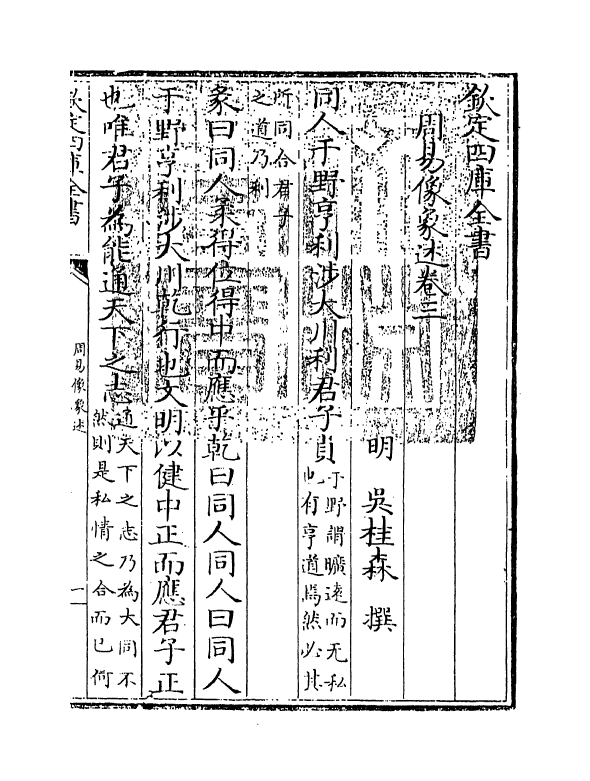 欽定四庫全書
周易像象述卷三
明　吳桂森　撰
同人于野亨利涉大川利君子貞于野謂曠遠而无私也有亨道焉然必其
所同合君子之道乃利
彖曰同人柔得位得中而應乎乾曰同人同人曰同人
于野亨利涉大川乾行也文明以健中正而應君子正
也唯君子為能通天下之志通天下之志乃為大同不然則是私情之合而已何
欽定四庫全書
周易像象述
一